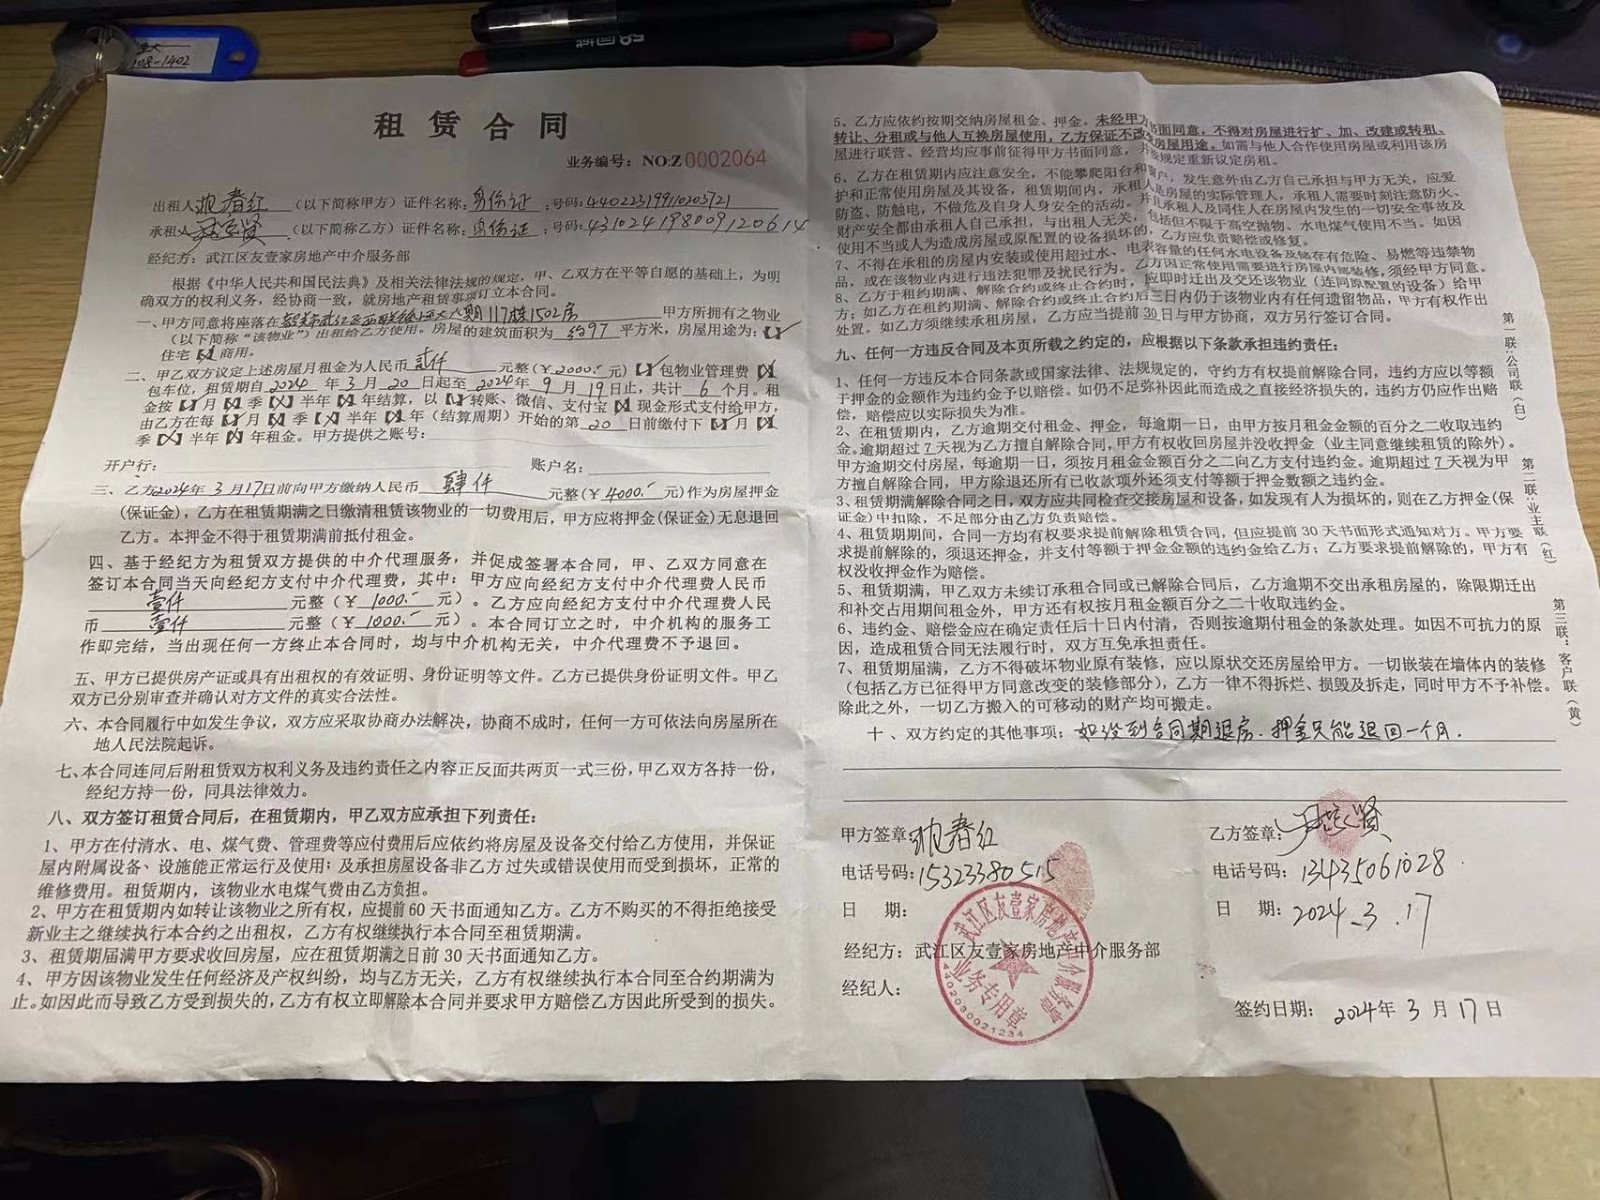 108-1402
租 赁 合 同
业务编号：NO:Z 0002064
出租人 春红 （以下简称甲方）证件名称：身份证 ；号码：440223199110203721
承租人 贤 （以下简称乙方）证件名称：身份证 ；号码：431024198009120614
经纪方：武江区友壹家房地产中介服务部
根据《中华人民共和国民法典》及相关法律法规的规定，甲、乙双方在平等自愿的基础上，为明
确双方的权利义务，经协商一致，就房地产租赁事项订立本合同。
一、甲方同意将座落在 韶关市武江区西联镇 八期117栋1502房 甲方所拥有之物业
（以下简称“该物业”）出租给乙方使用。房屋的建筑面积为 约97 平方米，房屋用途为：【✓】
住宅【×】商用。
二、甲乙双方议定上述房屋月租金为人民币 贰仟 元整（￥2000.- 元）【✓】包物业管理费【×】
包车位，租赁期自 2024 年 3 月 20 日起至 2024 年 9 月 19 日止，共计 6 个月。租
金按【✓】月【×】季【×】半年【×】年结算，以【✓】转账、微信、支付宝【×】现金形式支付给甲方，
由乙方在每【✓】月【×】季【×】半年【×】年（结算周期）开始的第 20 日前缴付下【✓】月【×】
季【×】半年【×】年租金。甲方提供之账号：
开户行： 账户名：
三、乙方2024年 3月17日前向甲方缴纳人民币 肆仟 元整（￥4000.- 元)作为房屋押金
(保证金)，乙方在租赁期满之日缴清租赁该物业的一切费用后，甲方应将押金(保证金)无息退回
乙方。本押金不得于租赁期满前抵付租金。
四、基于经纪方为租赁双方提供的中介代理服务，并促成签署本合同，甲、乙双方同意在
签订本合同当天向经纪方支付中介代理费，其中：甲方应向经纪方支付中介代理费人民币
壹仟 元整（￥ 1000.- 元）。乙方应向经纪方支付中介代理费人民
币 壹仟 元整（￥ 1000.- 元）。本合同订立之时，中介机构的服务工
作即完结，当出现任何一方终止本合同时，均与中介机构无关，中介代理费不予退回。
五、甲方已提供房产证或具有出租权的有效证明、身份证明等文件。乙方已提供身份证明文件。甲乙
双方已分别审查并确认对方文件的真实合法性。
六、本合同履行中如发生争议，双方应采取协商办法解决，协商不成时，任何一方可依法向房屋所在
地人民法院起诉。
七、本合同连同后附租赁双方权利义务及违约责任之内容正反面共两页一式三份，甲乙双方各持一份，
经纪方持一份，同具法律效力。
八、双方签订租赁合同后，在租赁期内，甲乙双方应承担下列责任：
1、甲方在付清水、电、煤气费、管理费等应付费用后应依约将房屋及设备交付给乙方使用，并保证
屋内附属设备、设施能正常运行及使用；及承担房屋设备非乙方过失或错误使用而受到损坏，正常的
维修费用。租赁期内，该物业水电煤气费由乙方负担。
2、甲方在租赁期内如转让该物业之所有权，应提前60天书面通知乙方。乙方不购买的不得拒绝接受
新业主之继续执行本合约之出租权，乙方有权继续执行本合同至租赁期满。
3、租赁期届满甲方要求收回房屋，应在租赁期满之日前30天书面通知乙方。
4、甲方因该物业发生任何经济及产权纠纷，均与乙方无关，乙方有权继续执行本合同至合约期满为
止。如因此而导致乙方受到损失的，乙方有权立即解除本合同并要求甲方赔偿乙方因此所受到的损失。
5、乙方应依约按期交纳房屋租金、押金。未经甲方书面同意，不得对房屋进行扩、加、改建或转租、
转让、分租或与他人互换房屋使用，乙方保证不改变房屋用途。如需与他人合作使用房屋或利用该房
屋进行联营、经营均应事前征得甲方书面同意，并按规定重新议定房租。
6、乙方在租赁期内应注意安全，不能攀爬阳台和窗户，发生意外由乙方自己承担与甲方无关，应爱
护和正常使用房屋及其设备，租赁期间内，承租人是房屋的实际管理人，承租人需要时刻注意防火、
防盗、防触电，不做危及自身人身安全的活动。并且承租人及同住人在房屋内发生的一切安全事故及
财产安全都由承租人自己承担，与出租人无关，包括但不限于高空抛物、水电煤气使用不当。如因
使用不当或人为造成房屋或原配置的设备损坏的，乙方应负责赔偿或修复。
7、不得在承租的房屋内安装或使用超过水、电表容量的任何水电设备及储存有危险、易燃等违禁物
品，或在该物业内进行违法犯罪及扰民行为。乙方因正常使用需要进行房屋内部装修，须经甲方同意。
8、乙方于租约期满、解除合约或终止合约时，应即时迁出及交还该物业（连同原配置的设备）给甲
方；如乙方在租约期满、解除合约或终止合约后三日内仍于该物业内有任何遗留物品，甲方有权作出
处置。如乙方须继续承租房屋，乙方应当提前30日与甲方协商，双方另行签订合同。
九、任何一方违反合同及本页所载之约定的，应根据以下条款承担违约责任：
1、任何一方违反本合同条款或国家法律、法规规定的，守约方有权提前解除合同，违约方应以等额
于押金的金额作为违约金予以赔偿。如仍不足弥补因此而造成之直接经济损失的，违约方仍应作出赔
偿，赔偿应以实际损失为准。
2、在租赁期内，乙方逾期交付租金、押金，每逾期一日，由甲方按月租金金额的百分之二收取违约
金。逾期超过7天视为乙方擅自解除合同，甲方有权收回房屋并没收押金（业主同意继续租赁的除外）。
甲方逾期交付房屋，每逾期一日，须按月租金金额百分之二向乙方支付违约金。逾期超过7天视为甲
方擅自解除合同，甲方除退还所有已收款项外还须支付等额于押金数额之违约金。
3、租赁期满解除合同之日，双方应共同检查交接房屋和设备，如发现有人为损坏的，则在乙方押金(保
证金)中扣除，不足部分由乙方负责赔偿。
4、租赁期期间，合同一方均有权要求提前解除租赁合同，但应提前30天书面形式通知对方。甲方要
求提前解除的，须退还押金，并支付等额于押金金额的违约金给乙方；乙方要求提前解除的，甲方有
权没收押金作为赔偿。
5、租赁期满，甲乙双方未续订承租合同或已解除合同后，乙方逾期不交出承租房屋的，除限期迁出
和补交占用期间租金外，甲方还有权按月租金额百分之二十收取违约金。
6、违约金、赔偿金应在确定责任后十日内付清，否则按逾期付租金的条款处理。如因不可抗力的原
因，造成租赁合同无法履行时，双方互免承担责任。
7、租赁期届满，乙方不得破坏物业原有装修，应以原状交还房屋给甲方。一切嵌装在墙体内的装修
（包括乙方已征得甲方同意改变的装修部分），乙方一律不得拆烂、损毁及拆走，同时甲方不予补偿。
除此之外，一切乙方搬入的可移动的财产均可搬走。
十、双方约定的其他事项：如没到合同期退房，押金只能退回一个月.
甲方签章： 春红
电话号码：15323380515
日 期：
经纪方：武江区友壹家房地产中介服务部
经纪人：
乙方签章： 贤
电话号码：13435061028
日 期：2024.3.17
签约日期：2024年 3 月 17日
武江区友壹家房地产中介服务部
业务专用章
440203002 1234
第一联：公司联（白）
第二联：业主联（红）
第三联：客户联（黄）